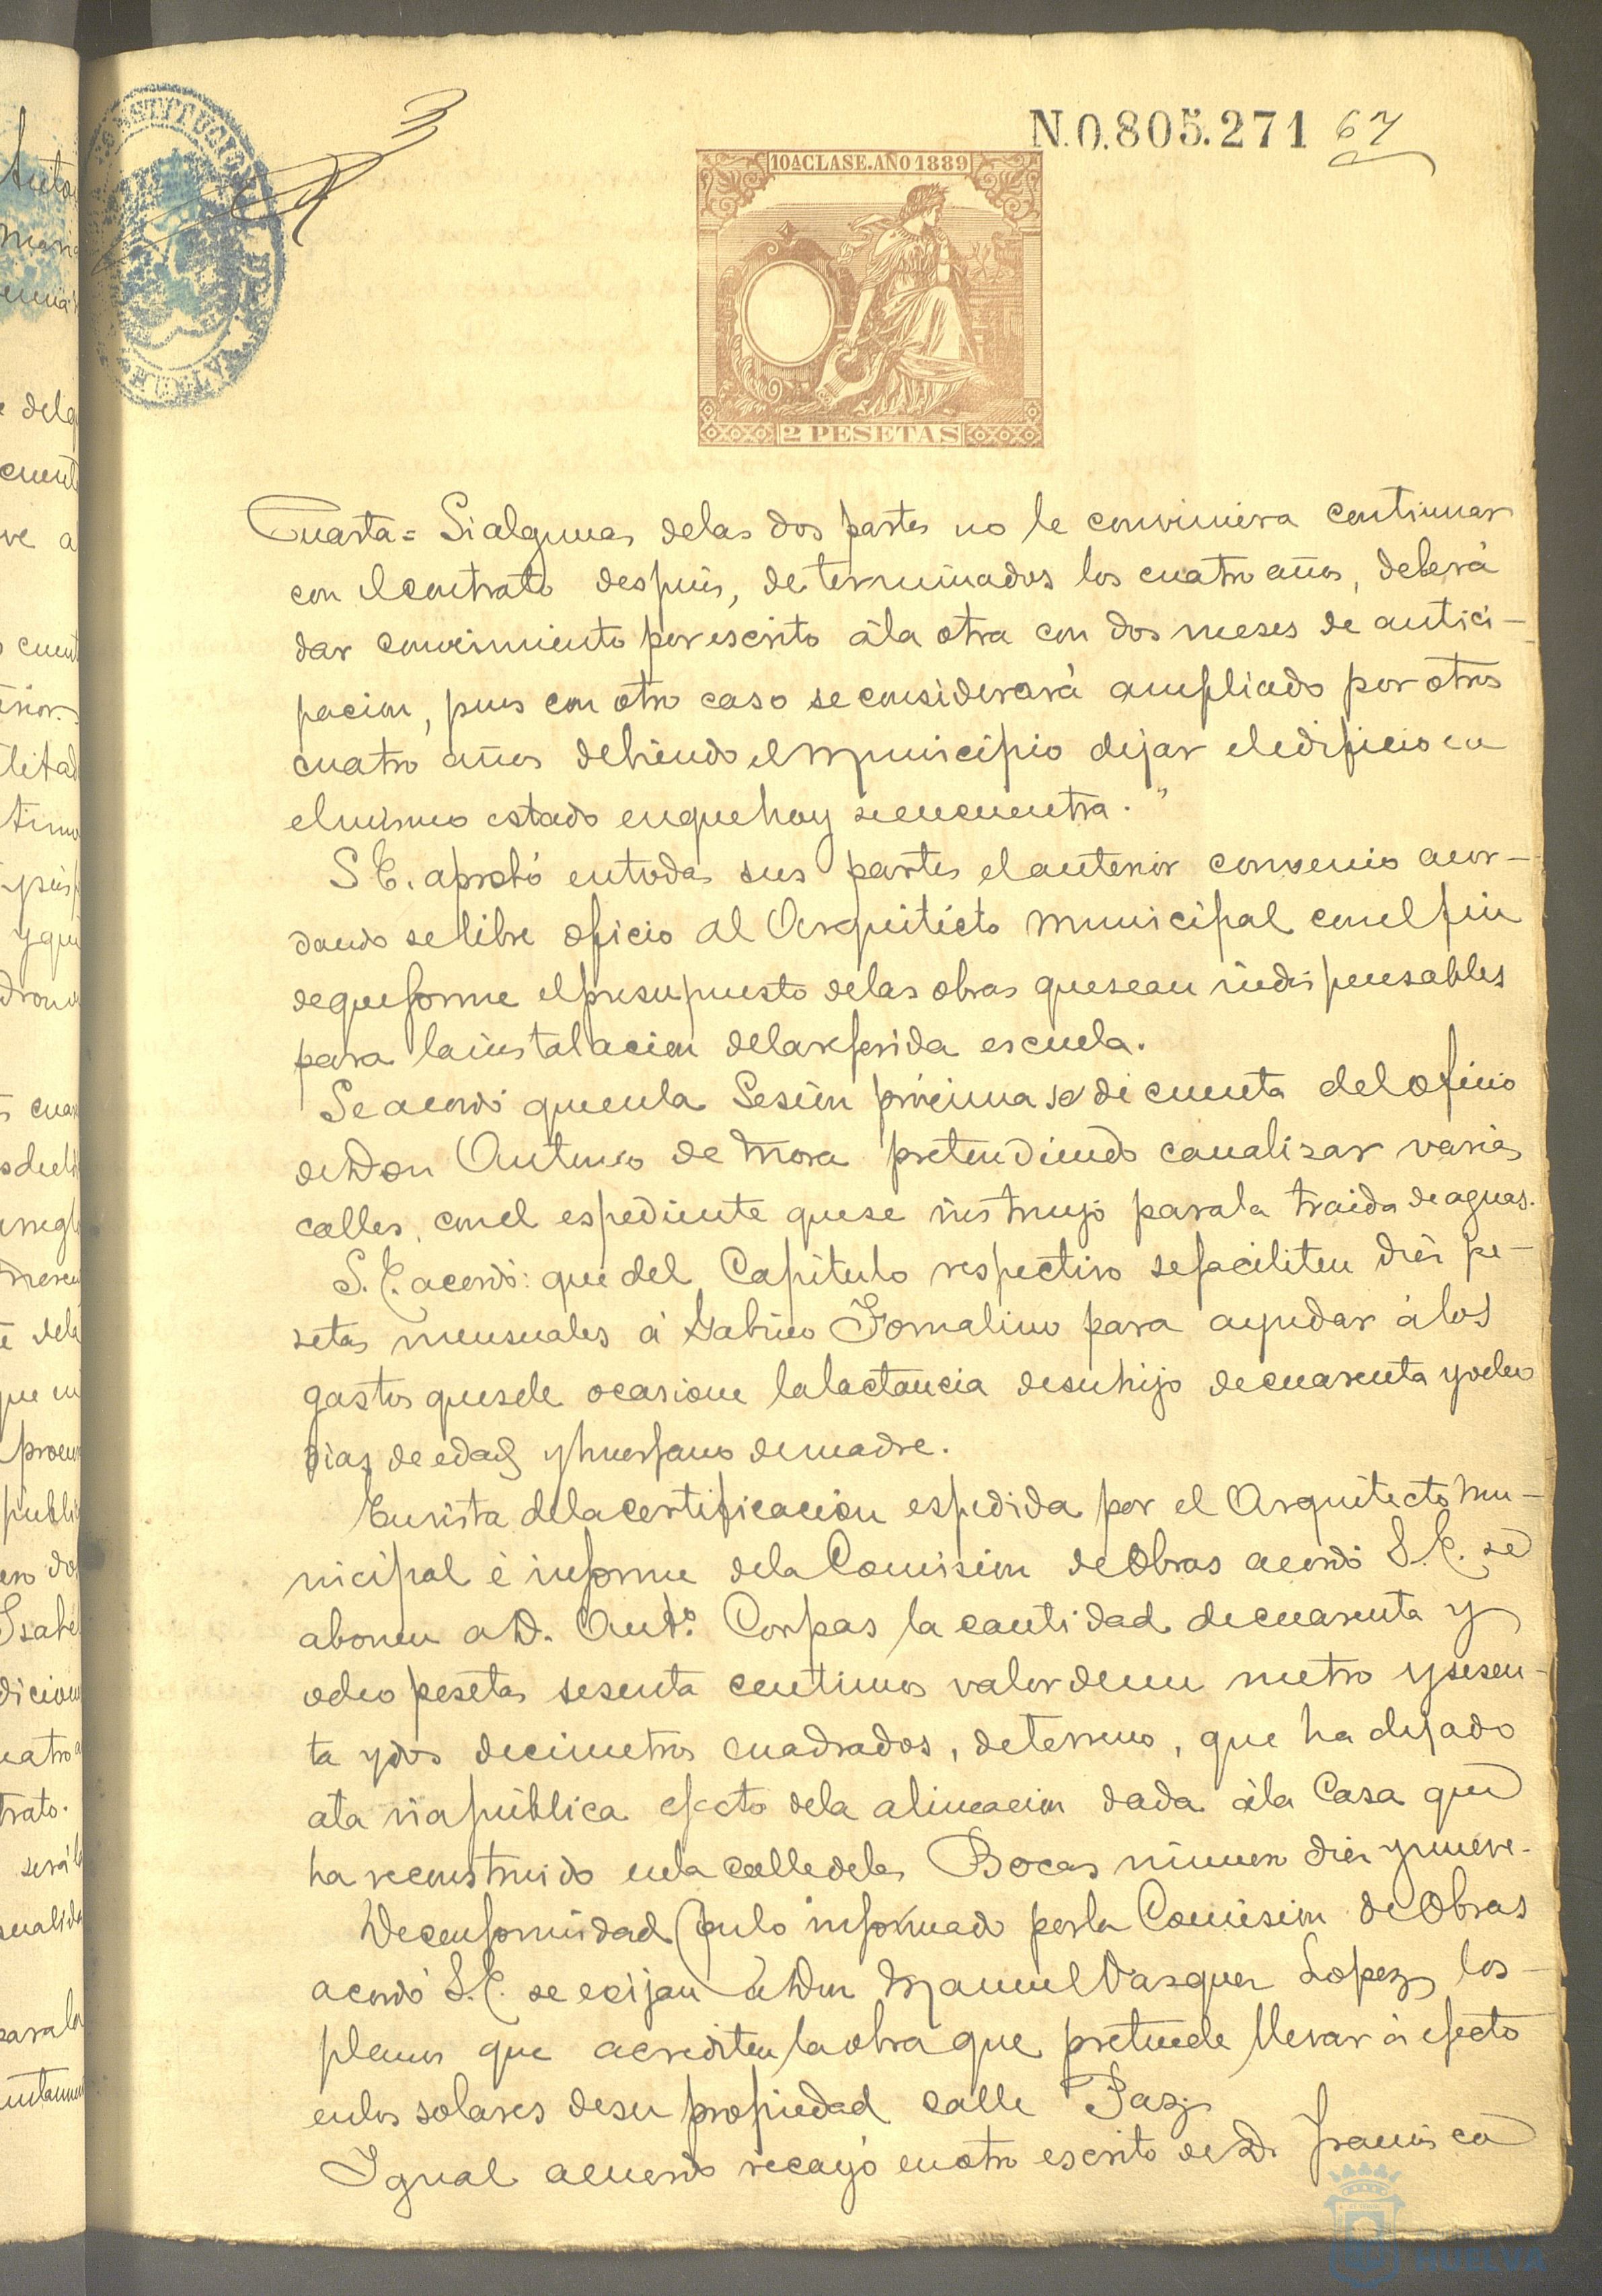 N.0.805.271 67
10ª CLASE. AÑO 1889
2 PESETAS
Cuarta = Si alguna de las dos partes no le conviniera continuar
con el contrato despues, de terminados los cuatro años, deberá
dar conocimiento por escrito á la otra con dos meses de antici-
pacion, pues con otro caso se considerará ampliado por otros
cuatro años debiendo el Municipio dejar el edificio en
el mismo estado en que hoy se encuentra."
S. E. aprobó en todas sus partes el anterior convenio acor-
dando se libre oficio al Arquitecto Municipal con el fin
de que forme el presupuesto de las obras que sean indispensables
para la instalacion de la referida escuela.
Se acordó que en la Sesion próxima se dé cuenta del oficio
de Don Antonio de Mora pretendiendo canalizar varias
calles, con el espediente que se instruyó para la traida de aguas.
S. E. acordó: que del Capítulo respectivo se faciliten diez pe-
setas mensuales á Gabino Fornalino para ayudar á los
gastos que se le ocasione la lactancia de su hijo de cuarenta y ocho
dias de edad y huerfano de madre.
En vista de la certificacion espedida por el Arquitecto Mu-
nicipal é informe de la Comision de Obras acordó S. E. se
abonen a D. Antº. Corpas la cantidad de cuarenta y
ocho pesetas sesenta centimos valor de un metro y sesen-
ta y dos decimetros cuadrados, de terreno, que ha dejado
a la via pública efecto de la alineacion dada á la Casa que
ha reconstruido en la calle de las Bocas número diez y nueve.
De conformidad con lo informado por la Comision de Obras
acordó S. E. se exijan á Don Manuel Vazquez Lopez los
planos que acrediten la obra que pretende llevar á efecto
en los solares de su propiedad calle Paz.
Igual acuerdo recayó en otro escrito de Dª Francisca
HUELVA